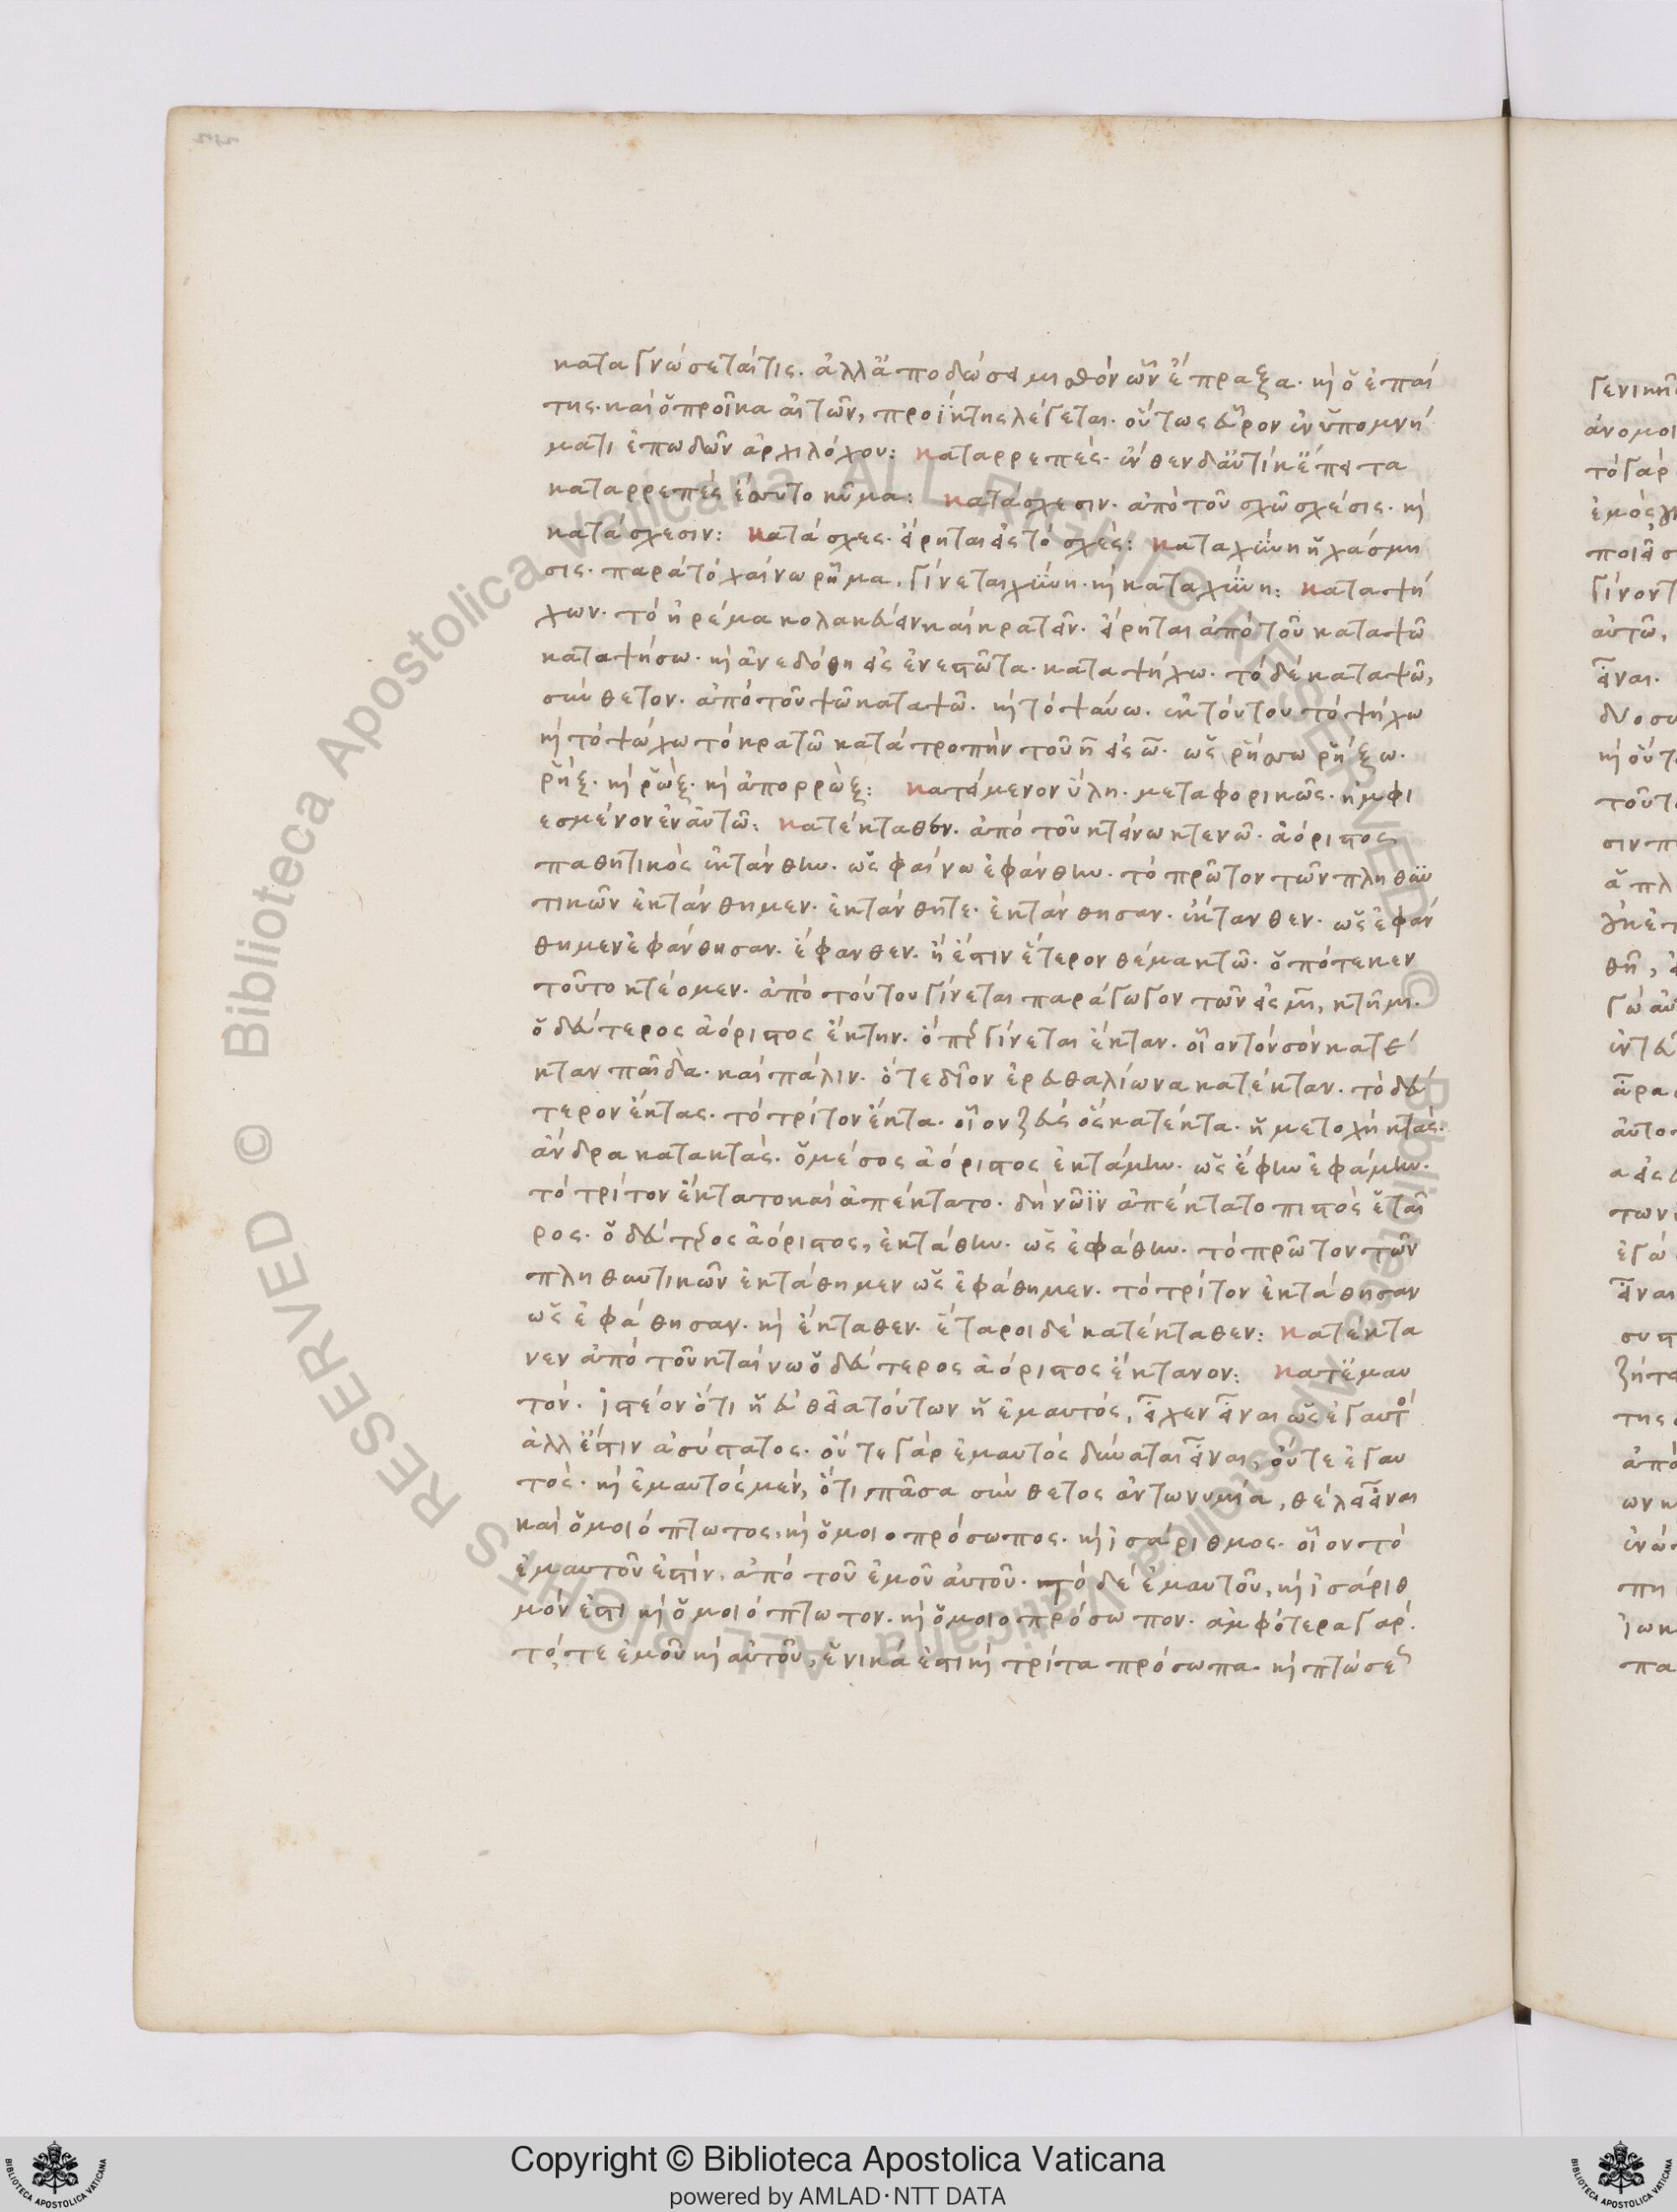 καταγνώσεταί τις. ἀλλ' ἀποδώσει μισθὸν ὧν ἔπραξα. κὶ ὁ ἐπαί
της. καὶ ὁ προῖκα αἰτῶν, προΐκτης λέγεται. οὕτως εὗρον ἐν ὑπομνή
ματι ἐπωδῶν ἀρχιλόχου: καταρρεπές. ἔνθεν δ' αὐτίκ' ἔπειτα
καταρρεπὲς ἔσσυτο κῦμα: κατάσχεσιν. ἀπὸ τοῦ σχῶ σχέσις. κὶ
κατάσχεσιν: κατάσχες. εἴρηται εἰς τὸ σχές: καταχήνη ἡ χάσμη
σις. παρὰ τὸ χαίνω ῥῆμα. γίνεται χήνη. κὶ καταχήνη: καταψή
χων. τὸ ἠρέμα κολακεύειν καὶ κρατεῖν. εἴρηται ἀπὸ τοῦ καταψῶ
καταψήσω. κὶ ἀνεδόθη εἰς ἐνεστῶτα. καταψήχω. τὸ δὲ καταψῶ,
σύνθετον. ἀπὸ τοῦ ψῶ καταψῶ. κὶ τὸ ψαύω. ἐκ τούτου τὸ ψήχω
κὶ τὸ ψώχω τὸ κρατῶ κατὰ τροπὴν τοῦ η εἰς ω. ὡς ῥήσσω ῥήξω.
ῥήξ. κὶ ῥώξ. κὶ ἀπορρώξ: κατειμένον ὕλη. μεταφορικῶς. ἠμφι
εσμένον ἐν αὐτῶ: κατέκταθεν. ἀπὸ τοῦ κτείνω κτενῶ. ἀόριστος
παθητικὸς ἐκτάνθην. ὡς φαίνω ἐφάνθην. τὸ πρῶτον τῶν πληθυν
τικῶν ἐκτάνθημεν. ἐκτάνθητε. ἐκτάνθησαν. ἔκτανθεν. ὡς ἐφάν
θημεν ἐφάνθησαν. ἔφανθεν. ἢ ἔστιν ἕτερον θέμα κτῶ. ὁπότε κεν
τοῦτο κτέομεν. ἀπὸ τούτου γίνεται παράγωγον τῶν εἰς μι, κτῆμι.
ὁ δεύτερος ἀόριστος ἔκτην. ὅπερ γίνεται ἔκταν. οἷον τὸν σὸν κατέ
κταν παῖδα. καὶ πάλιν. ὅτε δῖον ἐρευθαλίωνα κατέκταν. τὸ δεύ
τερον ἔκτας. τὸ τρίτον ἔκτα. οἷον ζεύς ὃς κατέκτα. ἡ μετοχὴ κτάς.
ἄνδρα κατακτάς. ὁ μέσος ἀόριστος ἐκτάμην. ὡς ἔφην ἐφάμην.
τὸ τρίτον ἔκτατο καὶ ἀπέκτατο. δὴ νῶϊν ἀπέκτατο πιστὸς ἑταῖ
ρος. ὁ δεύτερος ἀόριστος, ἐκτάθην. ὡς ἐφάθην. τὸ πρῶτον τῶν
πληθυντικῶν ἐκτάθημεν ὡς ἐφάθημεν. τὸ τρίτον ἐκτάθησαν
ὡς ἐφάθησαν. κὶ ἔκταθεν. ἕταροι δὲ κατέκταθεν: κατέκτα
νεν ἀπὸ τοῦ κταίνω ὁ δεύτερος ἀόριστος ἔκτανον: κατ' ἐμαυ
τόν. ἰστέον ὅτι ἡ εὐθεῖα τούτων ἡ ἐμαυτός, εἶχεν εἶναι ὡς ἐγαυτό
ἀλλ' ἔστιν ἀσύστατος. οὔτε γὰρ ἐμαυτὸς δύναται εἶναι, οὔτε ἐγαυ
τός. κὶ ἐμαυτὸς μέν, ὅτι πᾶσα σύνθετος ἀντωνυμία, θέλει εἶναι
καὶ ὁμοιόπτωτος, κὶ ὁμοιοπρόσωπος. κὶ ἰσάριθμος. οἷον τὸ
ἐμαυτοῦ ἐστίν, ἀπὸ τοῦ ἐμοῦ αὐτοῦ. τὸ δὲ ἐμαυτοῦ, κὶ ἰσάριθ
μόν ἐστι κὶ ὁμοιόπτωτον. κὶ ὁμοιοπρόσωπον. ἀμφότερα γάρ.
τό, τε ἐμοῦ κὶ αὐτοῦ, ἑνικά ἐστι κὶ τρίτα πρόσωπα. κὶ πτώσεως
Copyright © Biblioteca Apostolica Vaticana
powered by AMLAD·NTT DATA
© Biblioteca Apostolica Vaticana ALL RIGHTS RESERVED